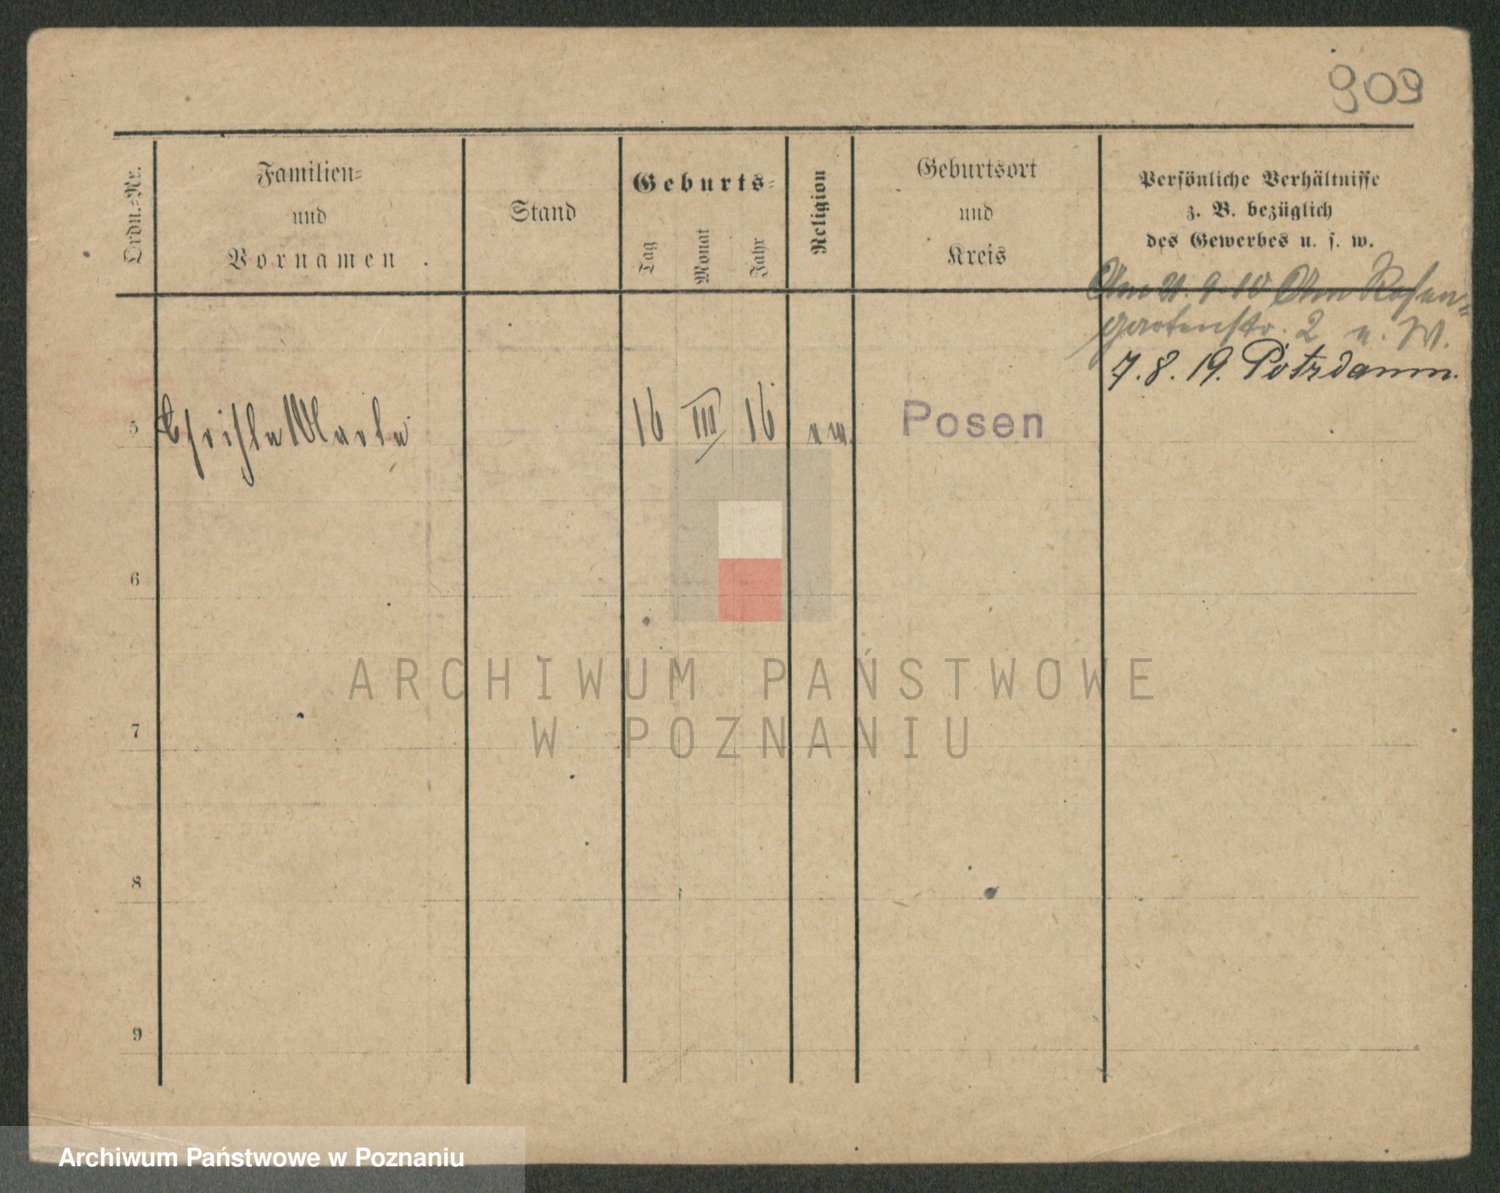 909
Ordn.-Nr.
Familien-
und
Vornamen
Stand
Geburts-
Tag
Monat
Jahr
Religion
Geburtsort
und
Kreis
Persönliche Verhältnisse
z. B. bezüglich
des Gewerbes u. s. w.
Rosen-
gartenstr. 2 u. W.
7. 8. 19. Potsdamm.
5 16 III 16 Posen
6
7
8
9
ARCHIWUM PAŃSTWOWE
W POZNANIU
Archiwum Państwowe w Poznaniu